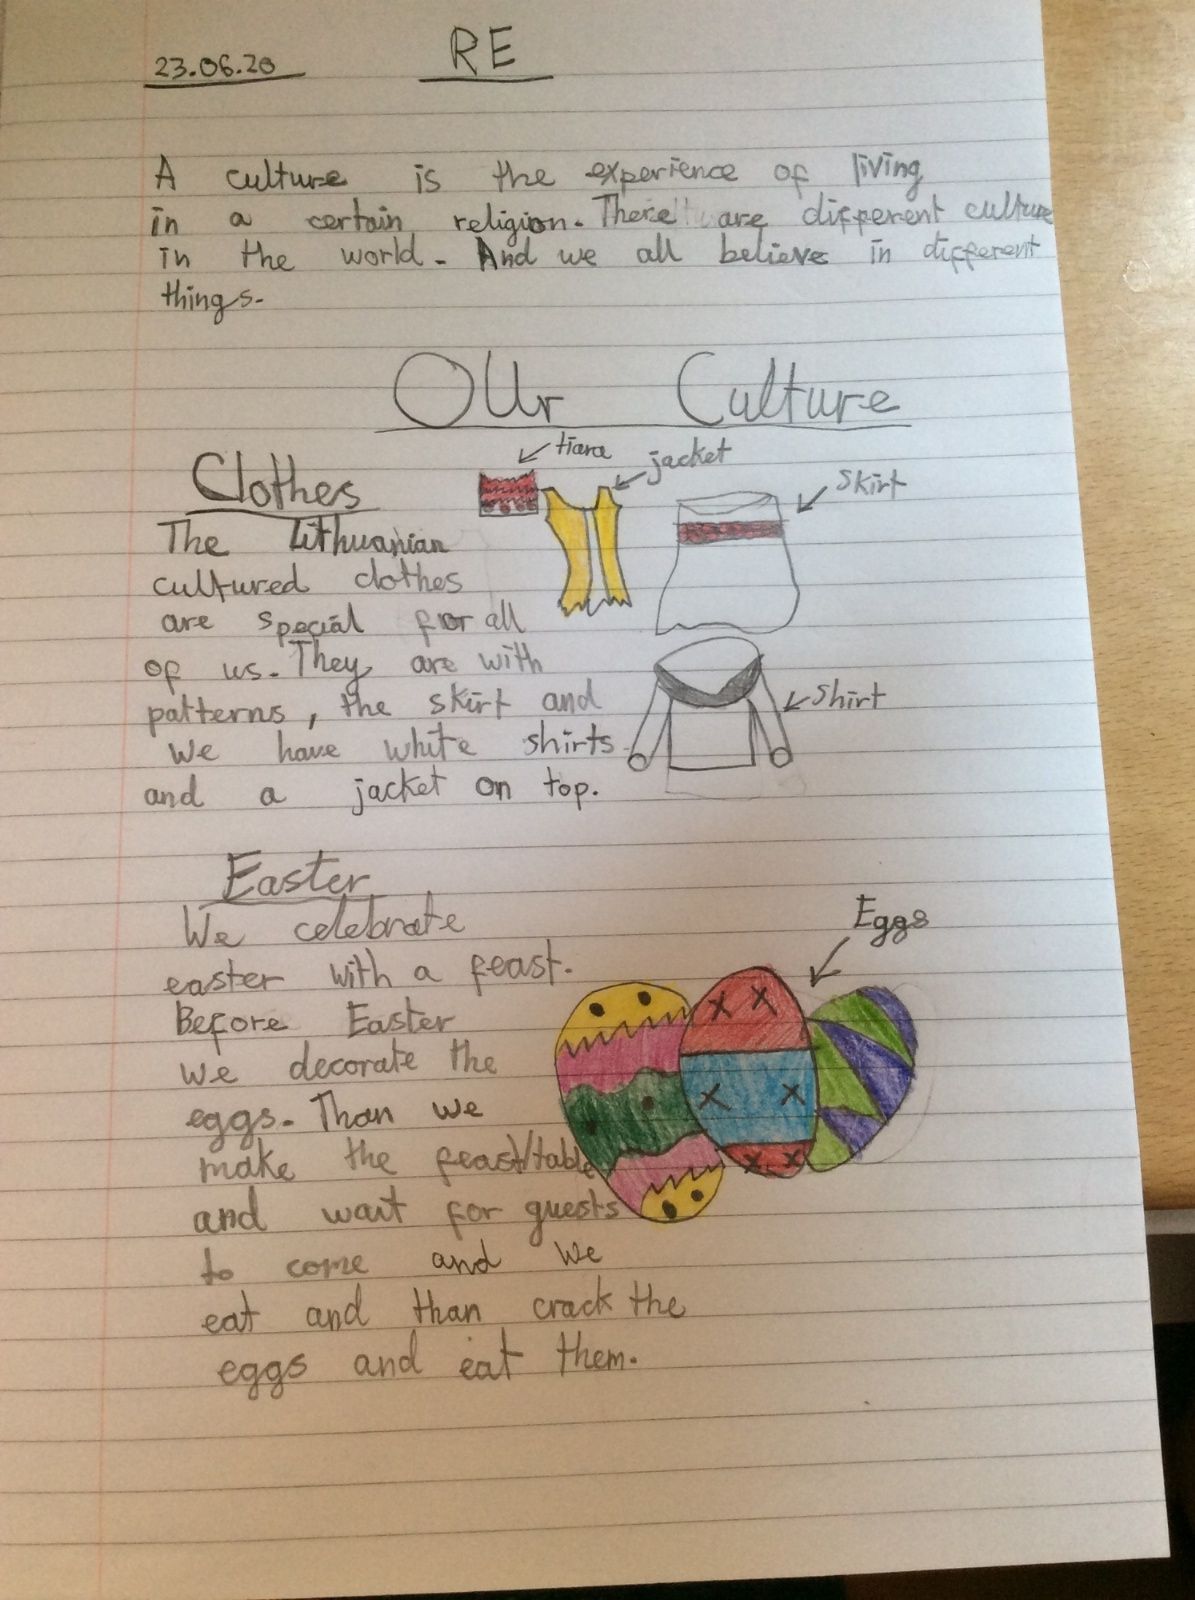 23.06.20 RE
A culture is the experience of living
in a certain religion. There are different culture
in the world. And we all believe in different
things.
OUr Culture
tiara
jacket
skirt
Clothes
The Lithuanian
cultured clothes
are special for all
of us. They are with
patterns, the skirt and
we have white shirts
and a jacket on top.
shirt
Easter
Eggs
We celebrate
easter with a feast.
Before Easter
we decorate the
eggs. Than we
make the feast/table
and wait for guests
to come and we
eat and than crack the
eggs and eat them.